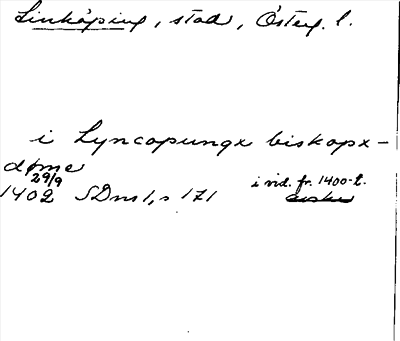 Linköping, stad, Österg. l.
i Lyncopungx biskopx-
døme
29/9
1402 SDns 1, s 171 i vid. fr. 1400-t.